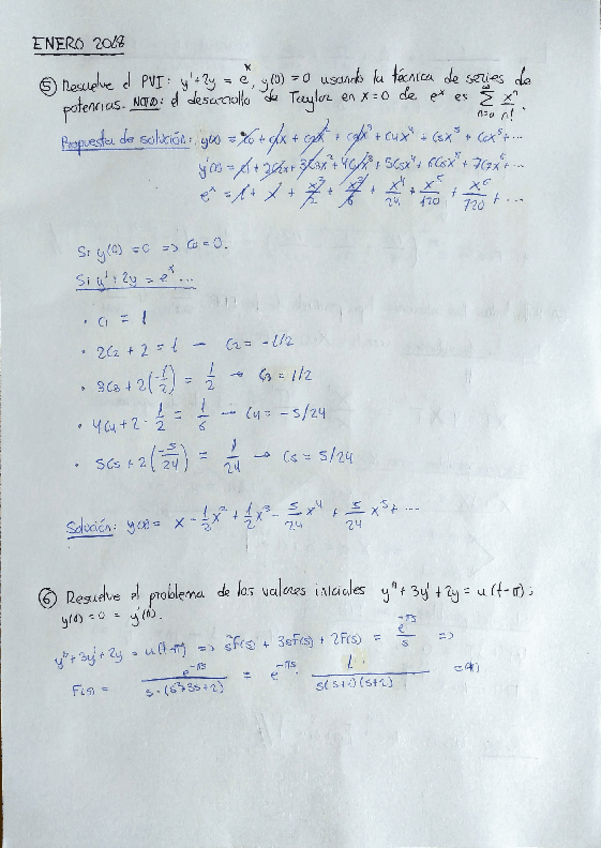 ENERO 2018
⑤ Resuelve el PVI: y' + 2y = e^x, y(0) = 0 usando la técnica de series de
potencias. NOTA: el desarrollo de Taylor en x=0 de e^x es ∑_{n=0}^∞ x^n/n!
Propuesta de solución: y(x) = c0 + c1x + c2x² + c3x³ + c4x⁴ + c5x⁵ + c6x⁶ + ...
y'(x) = c1 + 2c2x + 3c3x² + 4c4x³ + 5c5x⁴ + 6c6x⁵ + 7c7x⁶ + ...
e^x = 1 + x + x²/2 + x³/6 + x⁴/24 + x⁵/120 + x⁶/720 + ...
Si y(0) = 0 => c0 = 0.
Si y' + 2y = e^x ...
· c1 = 1
· 2c2 + 2 = 1 → c2 = -1/2
· 3c3 + 2(-1/2) = 1/2 → c3 = 1/2
· 4c4 + 2·1/2 = 1/6 → c4 = -5/24
· 5c5 + 2(-5/24) = 1/24 → c5 = 5/24
Solución: y(x) = x - 1/2x² + 1/2x³ - 5/24x⁴ + 5/24x⁵ + ...
⑥ Resuelve el problema de los valores iniciales y'' + 3y' + 2y = u(t-π);
y(0) = 0 = y'(0).
y'' + 3y' + 2y = u(t-π) => s²F(s) + 3sF(s) + 2F(s) = e^{-πs}/s =>
F(s) = e^{-πs}/(s·(s²+3s+2)) = e^{-πs} · 1/(s(s+1)(s+2))